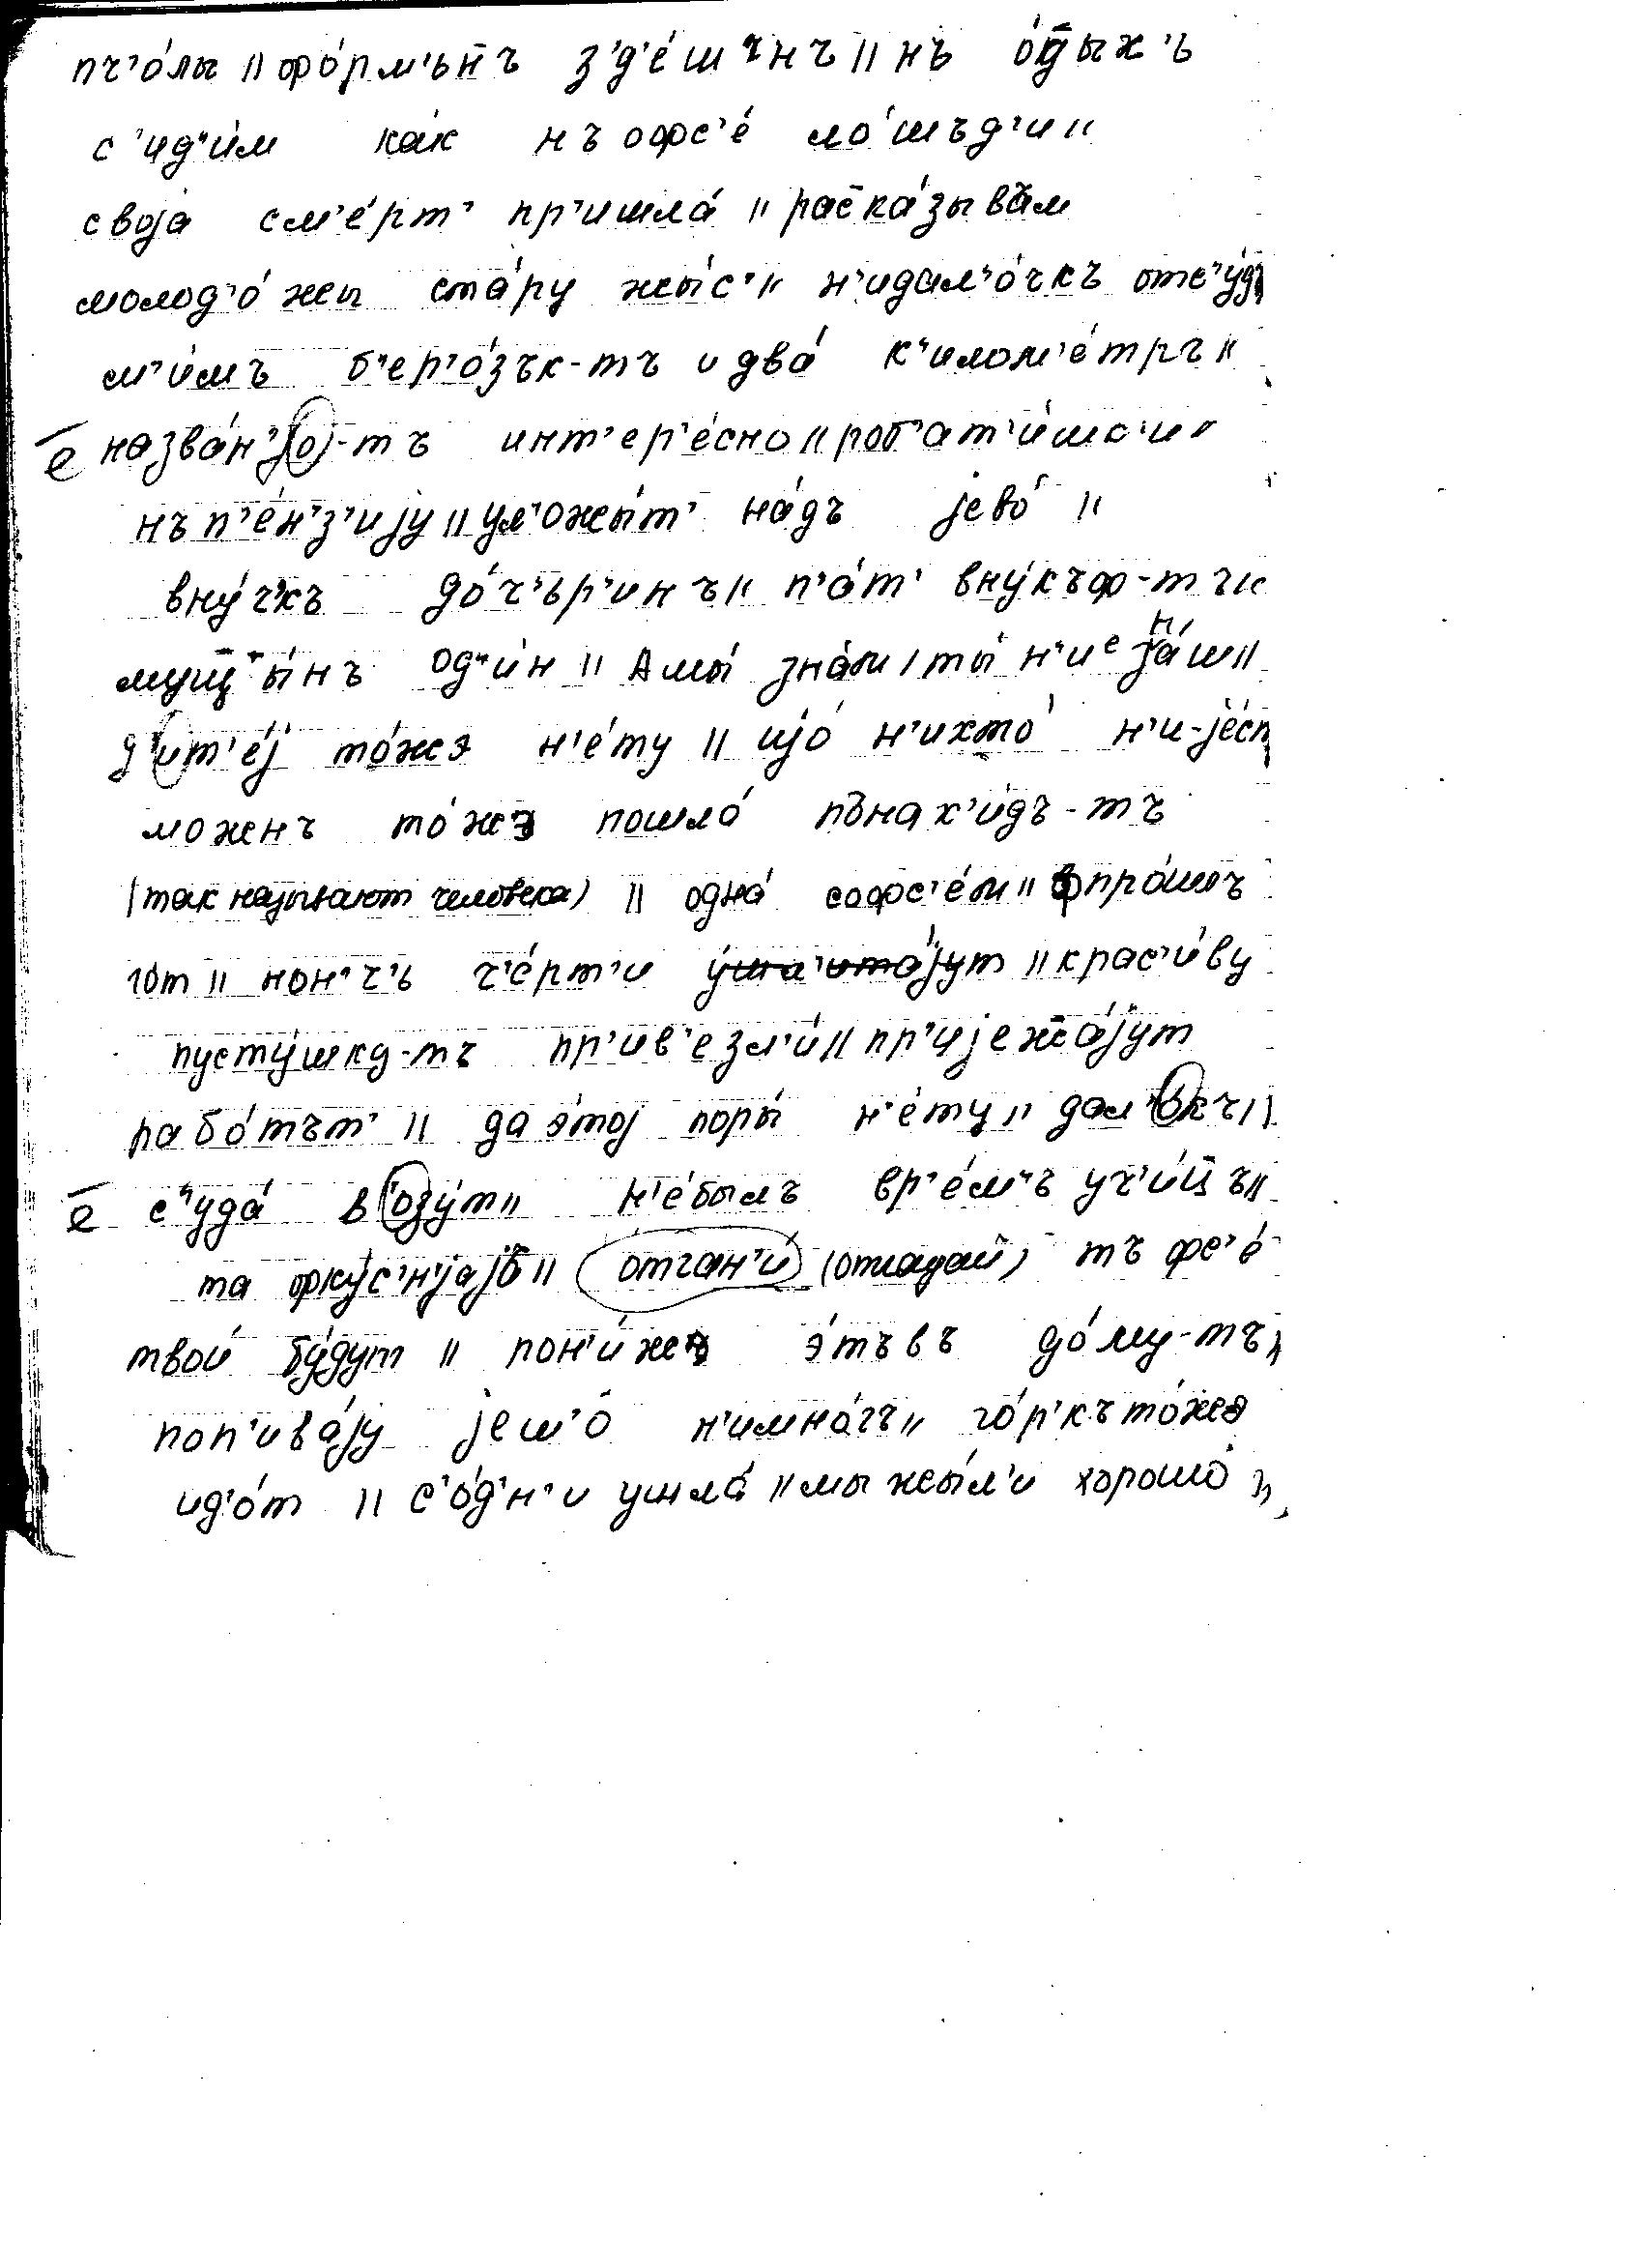 пч’о́лы || фо́рм’ьн̄ъ з’д’е́шънъ || нъ о́т̄ых’ь
с’ид’и́м ка́к нъ офс’е́ ло́шъд’и ||
своjа см’е́рт’ пр’ишла́ || рас̄ка́зывъм
молод’о́жы ста́ру жы́с’ || н’идал’о́чкъ отс’у́д
м’и́мъ б’ер’о́зък-тъ и два́ к’илом’е́тръ ||
е назва́н’jо-тъ инт’ер’е́сно || роб’ат’и́шк’и ||
нъ п’е́н’з’иjу || ул’ожы́т’ на́дъ jево́ ||
вну́ч’къ до́ч’ьр’инъ || п’а́т’ вну́къф-тъ ||
мущ̄ы́нъ од’и́н || А мы́ зна́ли / ты́ н’ие зна́ш ||
д’ит’е́j то́жэ н’е́ту || иjо́ н’ихто́ н’и-jе́ст
можнъ то́жэ пошла́ пънах’и́дъ-тъ
(так называют человека) || одна́ софс’е́м || фпро́шлъ
го́т || нон’ч’ь ч’е́рт’и || крас’и́ву
пусту́шку-тъ пр’ив’езл’и́ || пр’иjеж̄а́jут
рабо́тът’ || да э́тоj поры́ н’е́ту || дал’о́къ ||
е с’уда́ в’озу́т || н’е́былъ вр’е́м’ъ уч’и́ц̄ъ ||
та фку́с’н’jаjъ || отган’и́ (отгадай) тъ фс’е́
твои́ бу́дут || пон’и́жэ э́тъвъ до́му-тъ,
поп’ива́jу jеш’о́ н’имно́гъ || го́р’къ то́жэ
ид’о́т || с’о́д’н’и ушла́ || мы жы́л’и хорошо́ ||